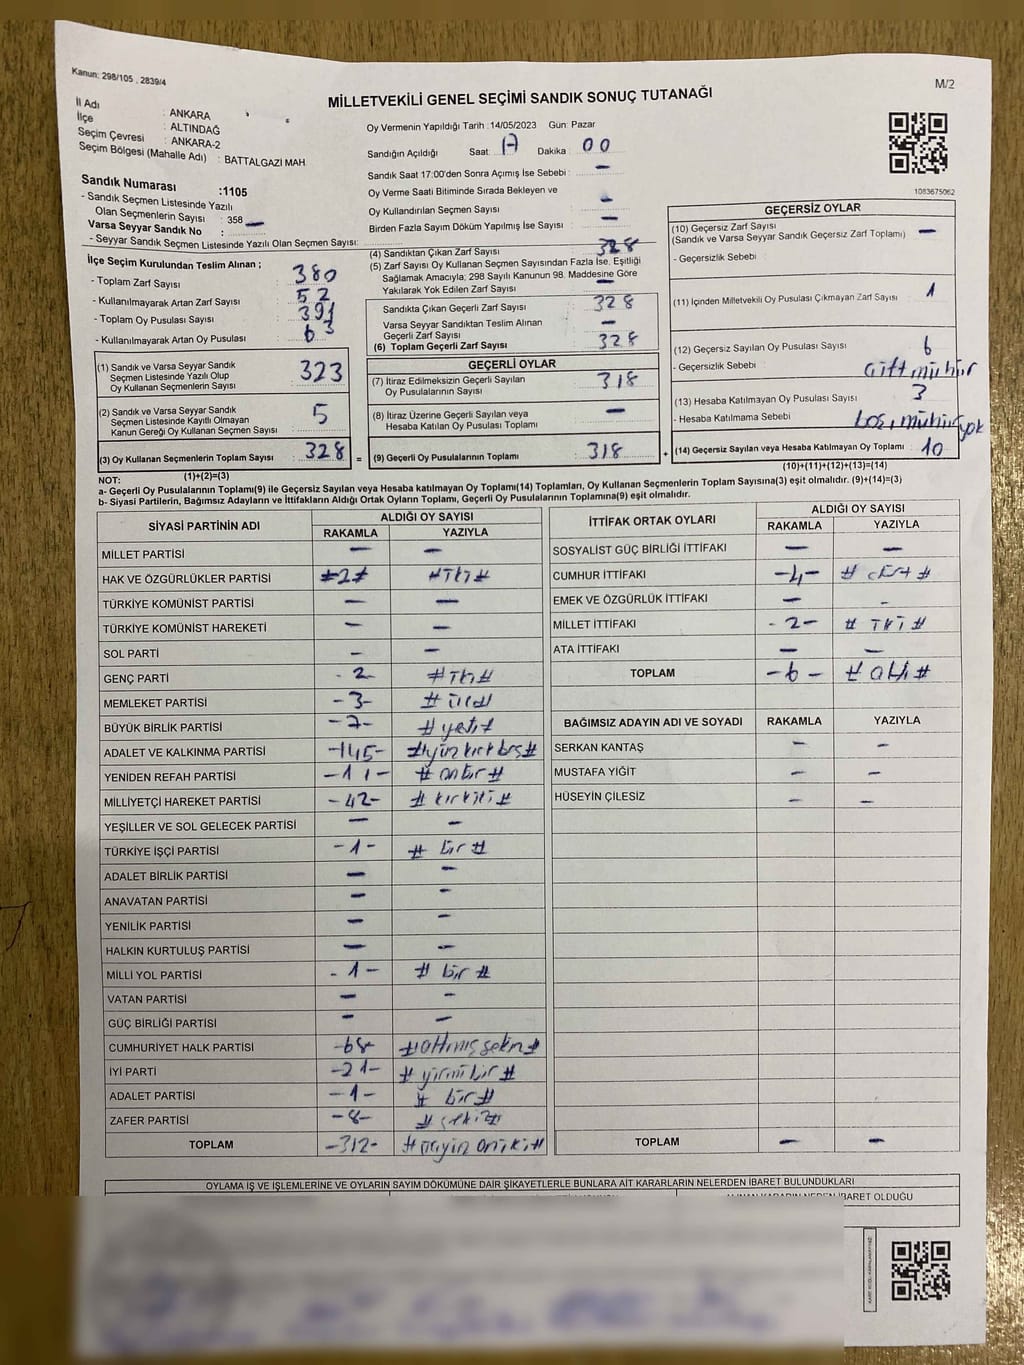 Kanun: 298/105 , 2839/4
M/2
MİLLETVEKİLİ GENEL SEÇİMİ SANDIK SONUÇ TUTANAĞI
İl Adı : ANKARA
İlçe : ALTINDAĞ
Seçim Çevresi : ANKARA-2
Seçim Bölgesi (Mahalle Adı) : BATTALGAZİ MAH
Oy Vermenin Yapıldığı Tarih :14/05/2023 Gün: Pazar
Sandığın Açıldığı Saat : 17 Dakika : 00
Sandık Saat 17:00'den Sonra Açımış İse Sebebi : -
Oy Verme Saati Bitiminde Sırada Bekleyen ve
Oy Kullandırılan Seçmen Sayısı : -
Birden Fazla Sayım Döküm Yapılmış İse Sayısı : -
1083675062
Sandık Numarası :1105
- Sandık Seçmen Listesinde Yazılı
Olan Seçmenlerin Sayısı : 358 -
Varsa Seyyar Sandık No :
- Seyyar Sandık Seçmen Listesinde Yazılı Olan Seçmen Sayısı:
İlçe Seçim Kurulundan Teslim Alınan ;
- Toplam Zarf Sayısı : 380
- Kullanılmayarak Artan Zarf Sayısı : 52
- Toplam Oy Pusulası Sayısı : 391
- Kullanılmayarak Artan Oy Pusulası : 63
(1) Sandık ve Varsa Seyyar Sandık
Seçmen Listesinde Yazılı Olup
Oy Kullanan Seçmenlerin Sayısı : 323
(2) Sandık ve Varsa Seyyar Sandık
Seçmen Listesinde Kayıtlı Olmayan
Kanun Gereği Oy Kullanan Seçmen Sayısı : 5
(3) Oy Kullanan Seçmenlerin Toplam Sayısı : 328 =
(1)+(2)=(3)
(4) Sandıktan Çıkan Zarf Sayısı : 328
(5) Zarf Sayısı Oy Kullanan Seçmen Sayısından Fazla İse, Eşitliği
Sağlamak Amacıyla; 298 Sayılı Kanunun 98. Maddesine Göre
Yakılarak Yok Edilen Zarf Sayısı : -
Sandıkta Çıkan Geçerli Zarf Sayısı : 328
Varsa Seyyar Sandıktan Teslim Alınan
Geçerli Zarf Sayısı : -
(6) Toplam Geçerli Zarf Sayısı : 328
GEÇERLİ OYLAR
(7) İtiraz Edilmeksizin Geçerli Sayılan
Oy Pusulalarının Sayısı : 318
(8) İtiraz Üzerine Geçerli Sayılan veya
Hesaba Katılan Oy Pusulası Toplamı : -
(9) Geçerli Oy Pusulalarının Toplamı : 318 +
GEÇERSİZ OYLAR
(10) Geçersiz Zarf Sayısı
(Sandık ve Varsa Seyyar Sandık Geçersiz Zarf Toplamı) : -
- Geçersizlik Sebebi :
(11) İçinden Milletvekili Oy Pusulası Çıkmayan Zarf Sayısı : 1
(12) Geçersiz Sayılan Oy Pusulası Sayısı : 6
- Geçersizlik Sebebi : Çift mühür
(13) Hesaba Katılmayan Oy Pusulası Sayısı : 3
- Hesaba Katılmama Sebebi : boş, mühür yok
(14) Geçersiz Sayılan veya Hesaba Katılmayan Oy Toplamı : 10
(10)+(11)+(12)+(13)=(14)
NOT:
a- Geçerli Oy Pusulalarının Toplamı(9) ile Geçersiz Sayılan veya Hesaba katılmayan Oy Toplamı(14) Toplamları, Oy Kullanan Seçmenlerin Toplam Sayısına(3) eşit olmalıdır. (9)+(14)=(3)
b- Siyasi Partilerin, Bağımsız Adayların ve İttifakların Aldığı Ortak Oyların Toplamı, Geçerli Oy Pusulalarının Toplamına(9) eşit olmalıdır.
SİYASİ PARTİNİN ADI ALDIĞI OY SAYISI
RAKAMLA YAZIYLA
MİLLET PARTİSİ - -
HAK VE ÖZGÜRLÜKLER PARTİSİ #2# #İki#
TÜRKİYE KOMÜNİST PARTİSİ - -
TÜRKİYE KOMÜNİST HAREKETİ - -
SOL PARTİ - -
GENÇ PARTİ - 2 #İki#
MEMLEKET PARTİSİ -3- # üç #
BÜYÜK BİRLİK PARTİSİ -7- # yedi #
ADALET VE KALKINMA PARTİSİ -145- #yüz kırk beş#
YENİDEN REFAH PARTİSİ -11- # onbir #
MİLLİYETÇİ HAREKET PARTİSİ -42- # kırkiki #
YEŞİLLER VE SOL GELECEK PARTİSİ - -
TÜRKİYE İŞÇİ PARTİSİ -1- # bir #
ADALET BİRLİK PARTİSİ - -
ANAVATAN PARTİSİ - -
YENİLİK PARTİSİ - -
HALKIN KURTULUŞ PARTİSİ - -
MİLLİ YOL PARTİSİ -1- # bir #
VATAN PARTİSİ - -
GÜÇ BİRLİĞİ PARTİSİ - -
CUMHURİYET HALK PARTİSİ -68- #altmış sekiz#
İYİ PARTİ -21- # yirmi bir #
ADALET PARTİSİ -1- # bir #
ZAFER PARTİSİ -8- # sekiz #
TOPLAM -312- #üçyüz oniki#
İTTİFAK ORTAK OYLARI ALDIĞI OY SAYISI
RAKAMLA YAZIYLA
SOSYALİST GÜÇ BİRLİĞİ İTTİFAKI - -
CUMHUR İTTİFAKI -4- # dört #
EMEK VE ÖZGÜRLÜK İTTİFAKI - -
MİLLET İTTİFAKI -2- # İki #
ATA İTTİFAKI - -
TOPLAM -6- # altı #
BAĞIMSIZ ADAYIN ADI VE SOYADI RAKAMLA YAZIYLA
SERKAN KANTAŞ - -
MUSTAFA YİĞİT - -
HÜSEYİN ÇİLESİZ - -
TOPLAM - -
OYLAMA İŞ VE İŞLEMLERİNE VE OYLARIN SAYIM DÖKÜMÜNE DAİR ŞİKAYETLERLE BUNLARA AİT KARARLARIN NELERDEN İBARET BULUNDUKLARI
ALINAN KARARIN NEDEN İBARET OLDUĞU